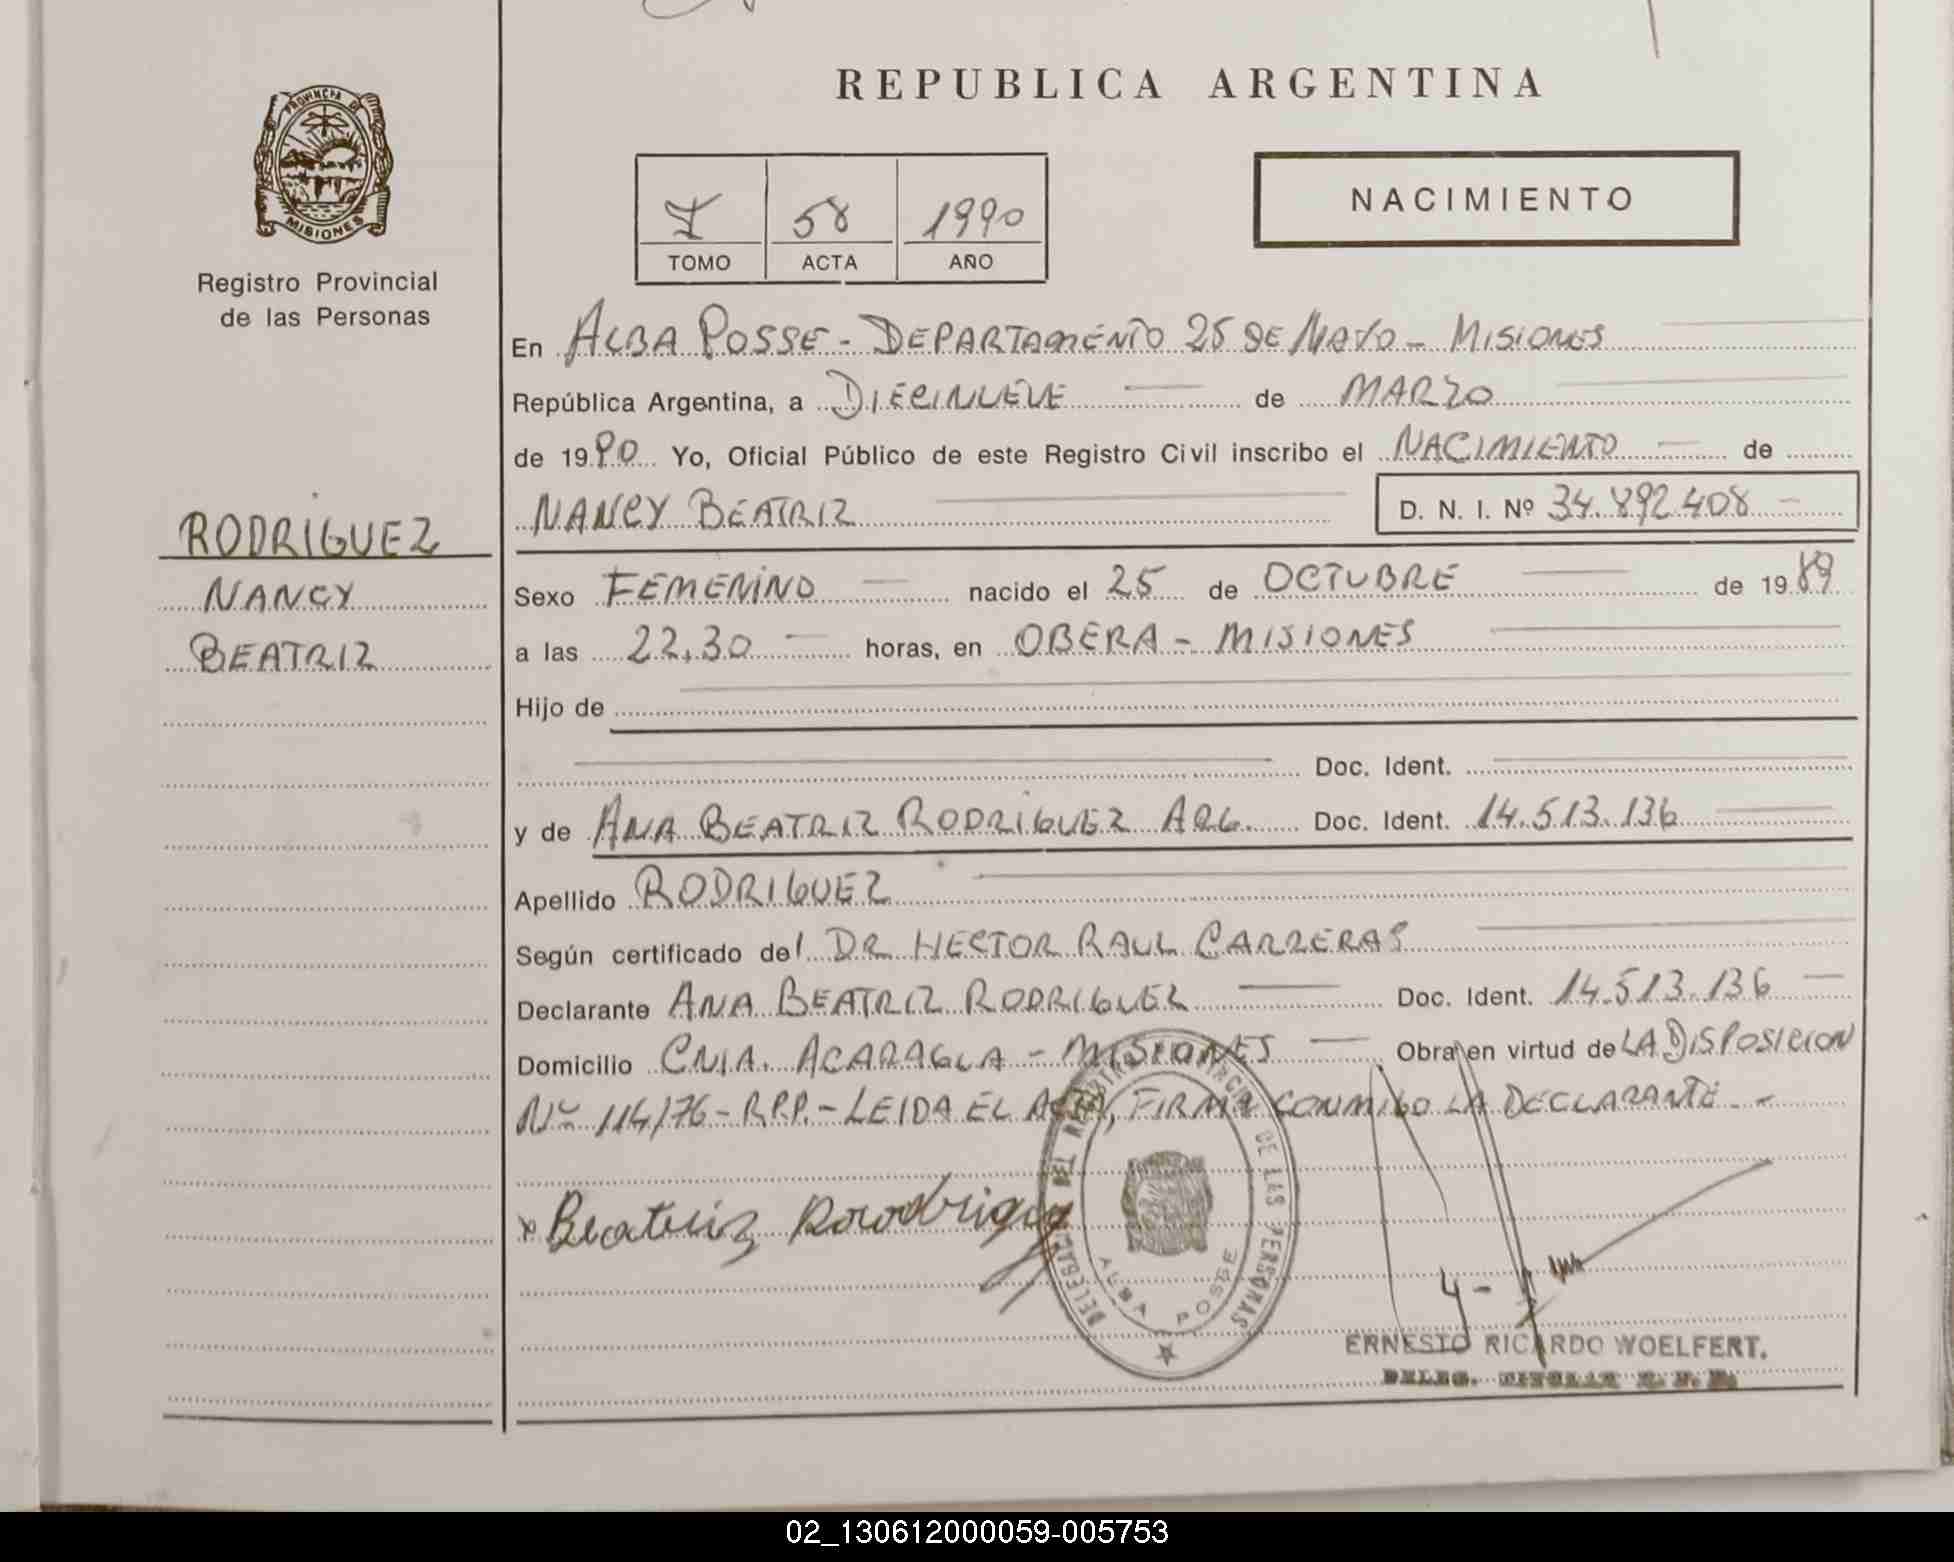 REPUBLICA ARGENTINA
PROVINCIA DE MISIONES
Registro Provincial
de las Personas
I 58 1990
TOMO ACTA AÑO
NACIMIENTO
En ALBA POSSE - DEPARTAMENTO 25 DE MAYO - MISIONES
República Argentina, a DIECINUEVE de MARZO
de 1990 Yo, Oficial Público de este Registro Civil inscribo el NACIMIENTO de
NANCY BEATRIZ D. N. I. Nº 34.892.408 -
RODRIGUEZ
NANCY
BEATRIZ
Sexo FEMENINO nacido el 25 de OCTUBRE de 1989
a las 22,30 horas, en OBERA - MISIONES
Hijo de
Doc. Ident.
y de ANA BEATRIZ RODRIGUEZ ARG. Doc. Ident. 14.513.136
Apellido RODRIGUEZ
Según certificado del DR HECTOR RAUL CARRERAS
Declarante ANA BEATRIZ RODRIGUEZ Doc. Ident. 14.513.136
Domicilio CNIA. ACARAGUA - MISIONES Obra en virtud de LA DISPOSICION
Nº 114/76 - R.P.P. - LEIDA EL ACTA, FIRMA CONMIGO LA DECLARANTE. -
x Beatriz Rorodrigez
DELEGACION DEL REGISTRO PROVINCIAL DE LAS PERSONAS
ALBA POSSE
ERNESTO RICARDO WOELFERT.
DELEG. TITULAR R. P. P.
02_130612000059-005753